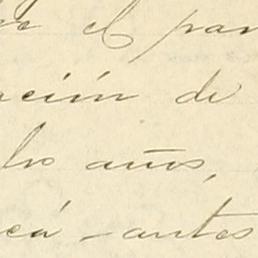 el par
ación de
los años,
cá - antes